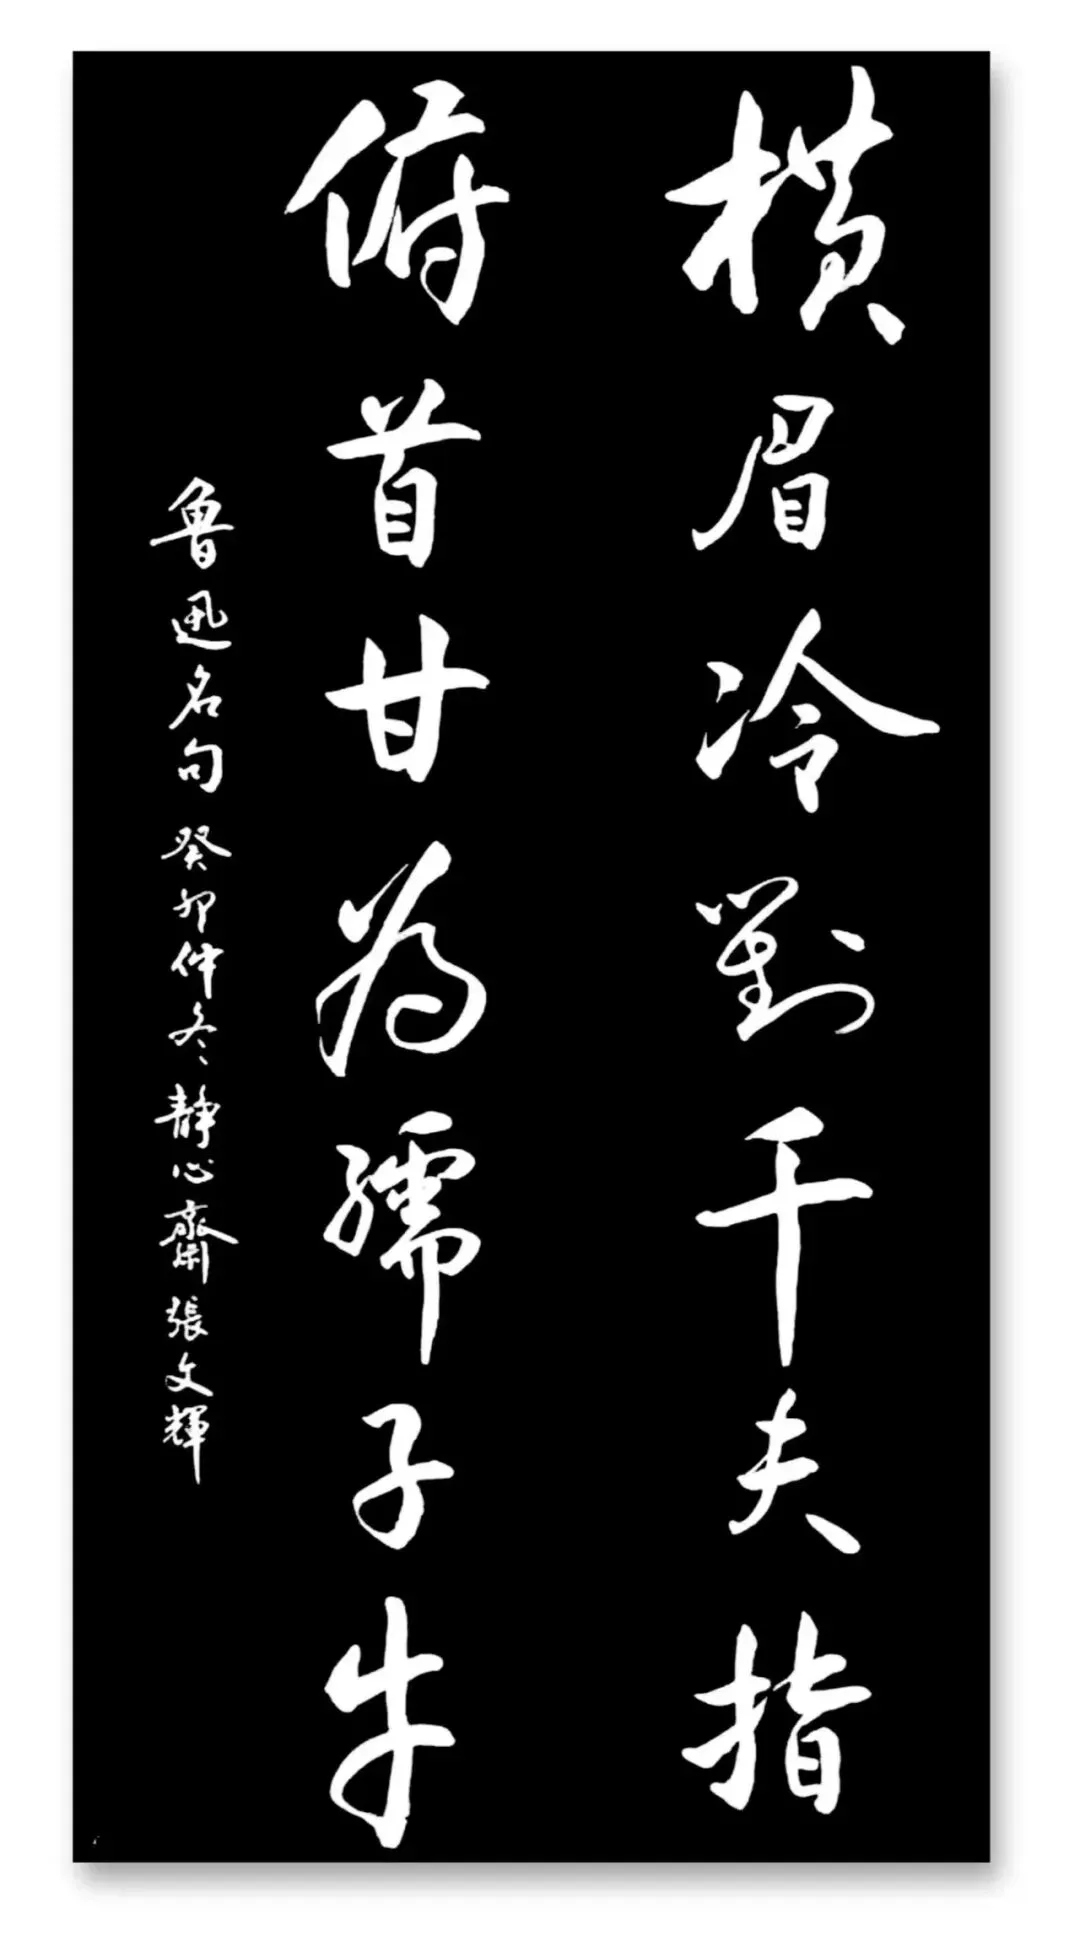 橫眉冷對千夫指
俯首甘为孺子牛
魯迅名句 癸卯仲冬 靜心齋 張文輝